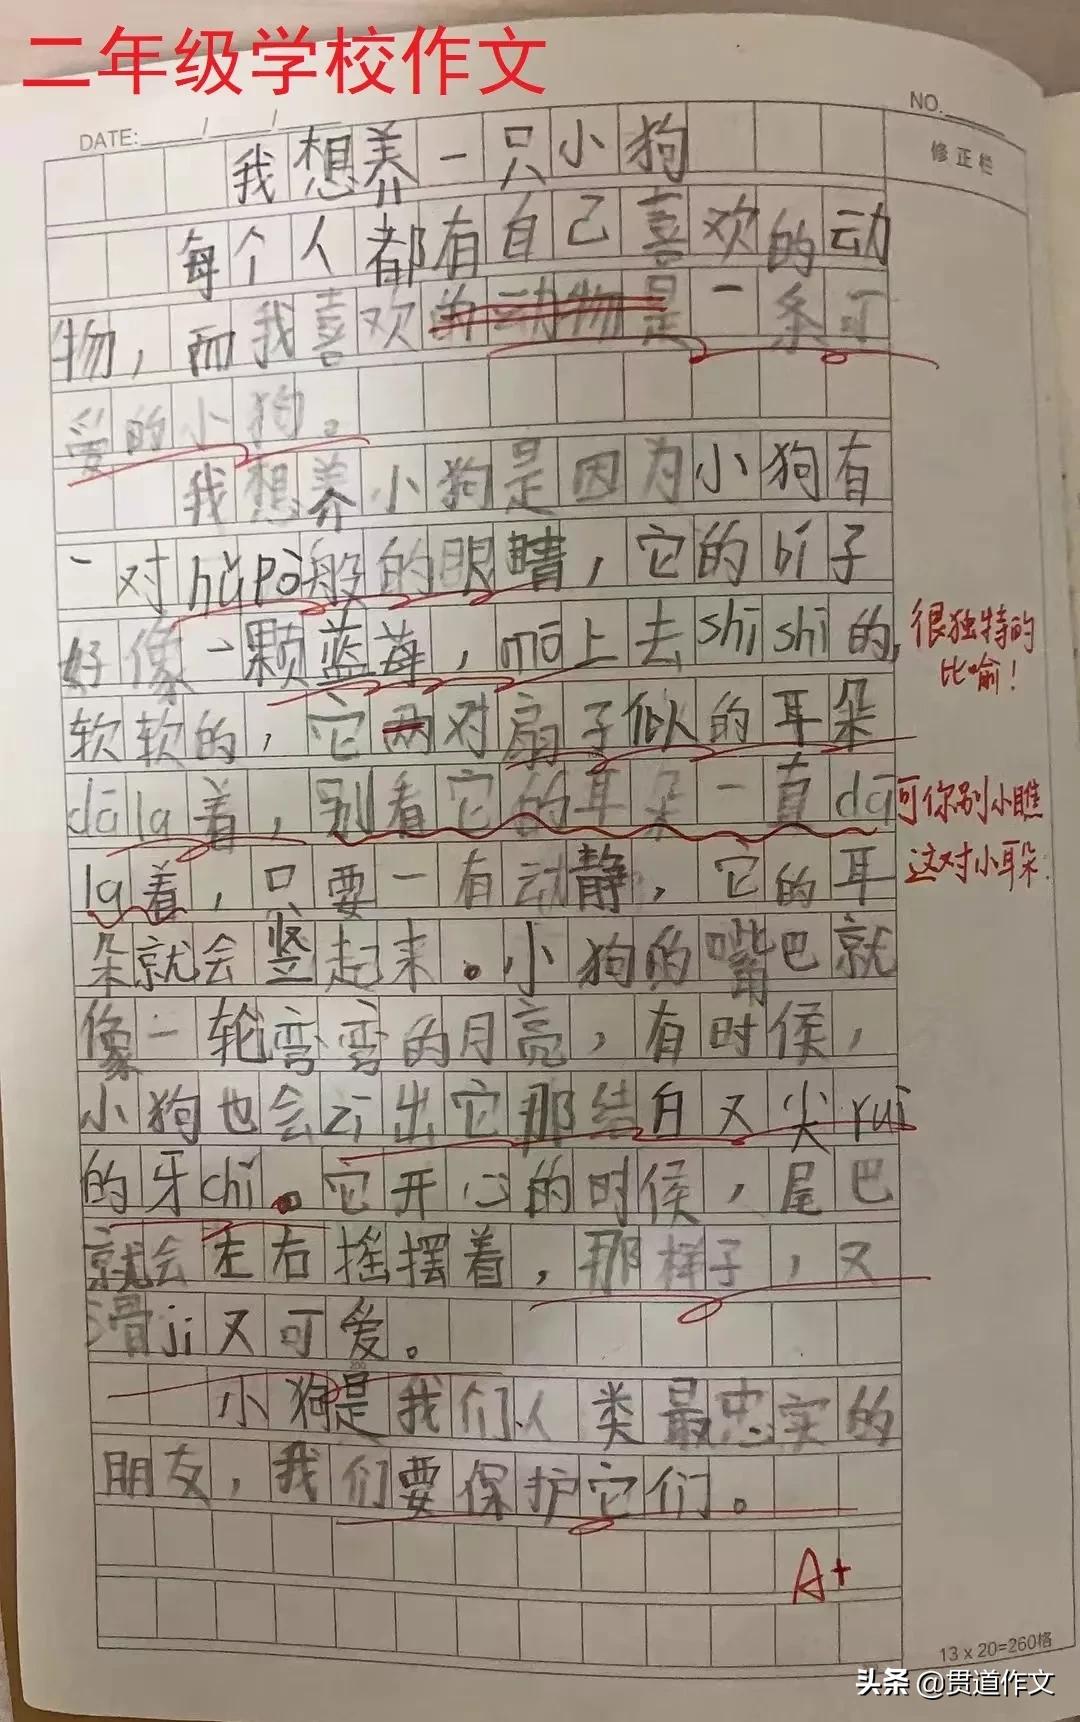 二年级学校作文
DATE: / /
NO.
修正栏
我想养一只小狗
每个人都有自己喜欢的动
物，而我喜欢的动物是一条可
爱的小狗。
我想养小狗是因为小狗有
一对hǔpò般的眼睛，它的bí子
好像一颗蓝莓，mō上去shī shī的，
很独特的
比喻！
软软的，它两对扇子似的耳朵
dā la着，别看它的耳朵一直dā
可你别小瞧
la着，只要一有动静，它的耳
这对小耳朵
朵就会竖起来。小狗的嘴巴就
像一轮弯弯的月亮，有时候，
小狗也会zī出它那结白又尖ruì
的牙chǐ。它开心的时候，尾巴
就会左右摇摆着，那样子，又
滑jī又可爱。
200
小狗是我们人类最忠实的
朋友，我们要保护它们。
A+
13×20=260格
头条 @贯道作文